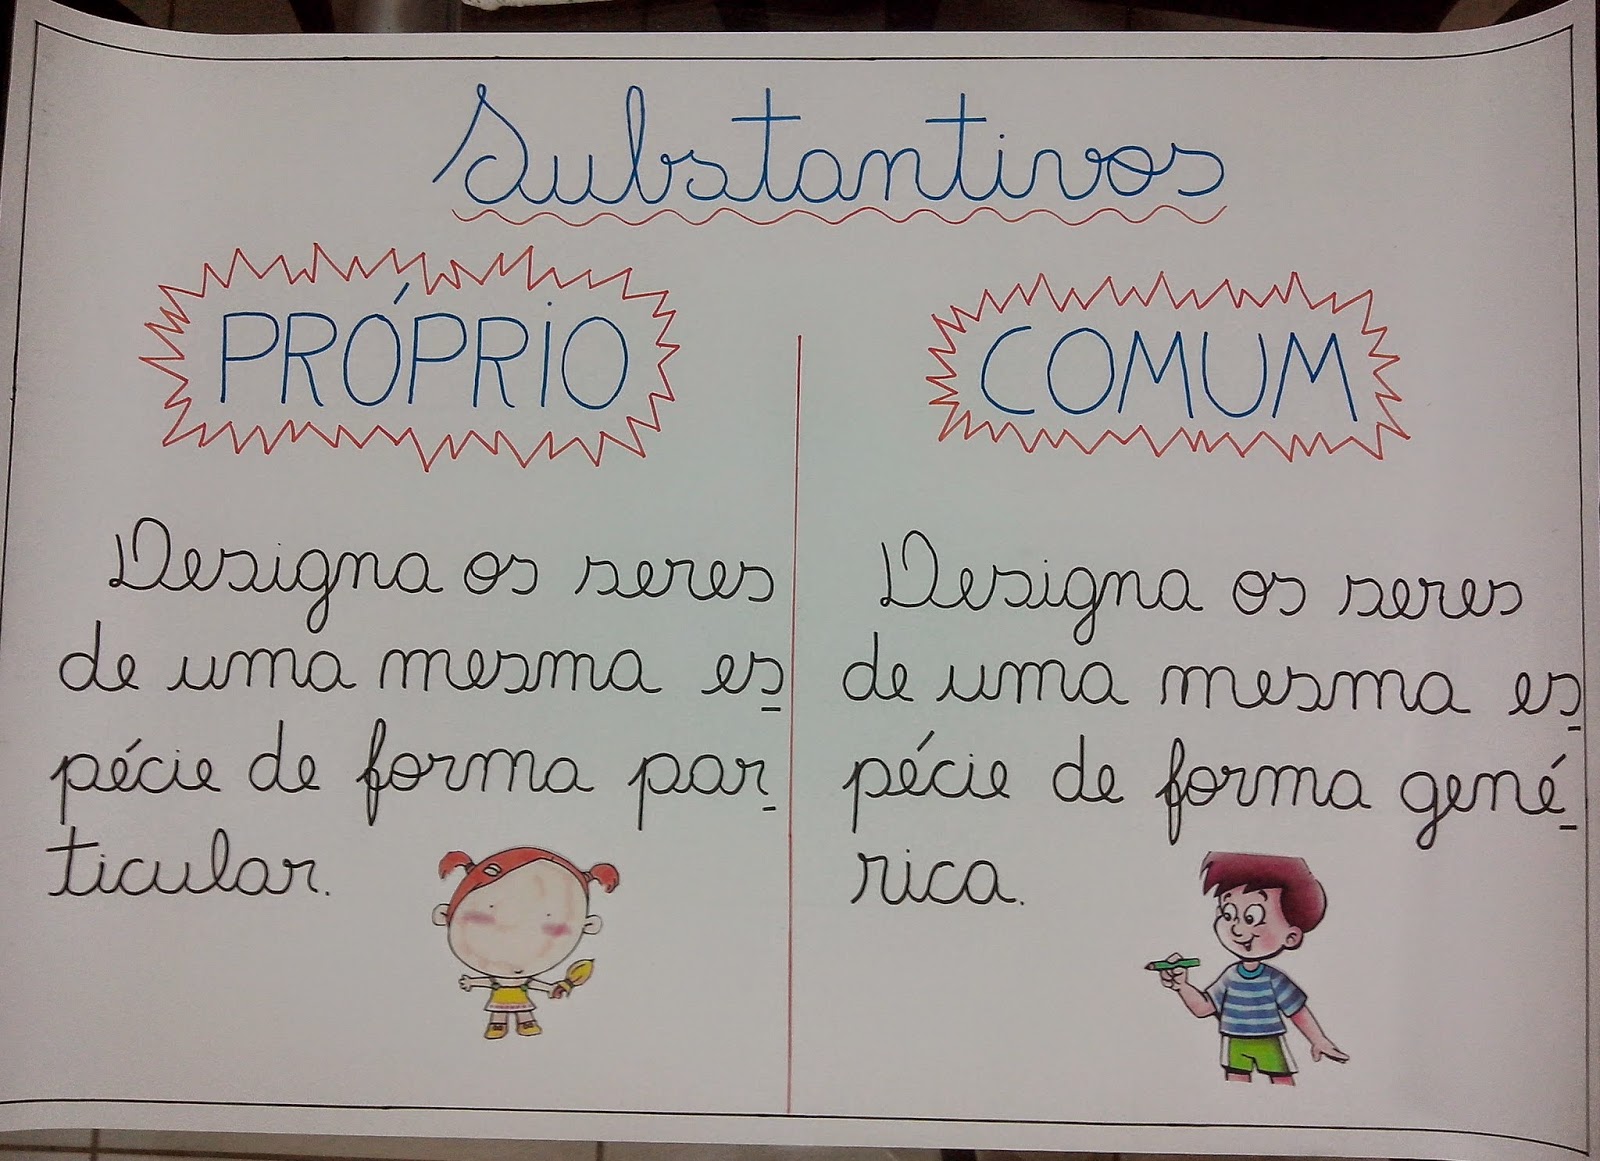 Substantivos
PRÓPRIO
Designa os seres
de uma mesma es
pécie de forma par
ticular.
COMUM
Designa os seres
de uma mesma es
pécie de forma gené
rica.